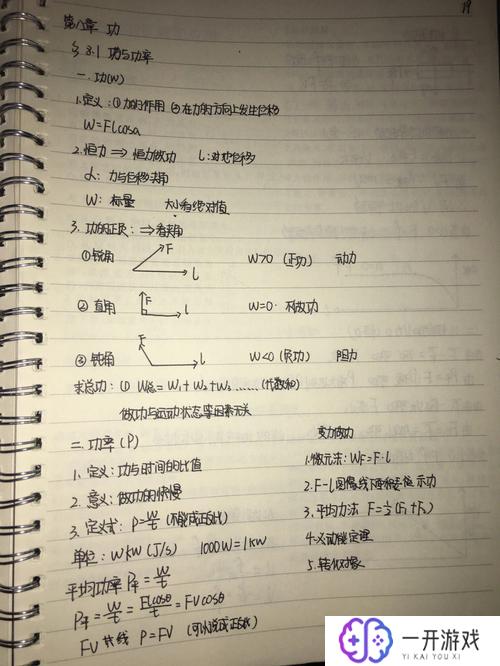 19
第八章 功
§8.1 功与功率
一.功(W)
1.定义:①力的作用 ②在力的方向上发生位移
W=Flcosα
2.恒力⇒恒力做功 l:对地位移
α:力与位移夹角
W:标量 大小看绝对值
3.功的正负:⇒看夹角
①锐角 F l W>0 (正功) 动力
②直角 F l W=0 不做功
③钝角 F l W<0 (负功) 阻力
求总功:① W总=W1+W2+W3……(代数和)
做功与运动状态等因素无关
二.功率(P)
1.定义:功与时间的比值
2.意义:做功的快慢
3.定义式:P=W/t (不能说成正反比)
单位:W kW (J/s) 1000W=1kW
平均功率 P平=W/t
P平=W/t=Flcosθ/t=FVcosθ
FV共线 P=FV (可以说成正反比)
变力做功
1.微元法:WF=F·l
2.F-l图像线下面积表示功
3.平均力法 F=½(F1+F2)
4.动能定理
5.转化对象
一开游戏
YI KAI YOU XI